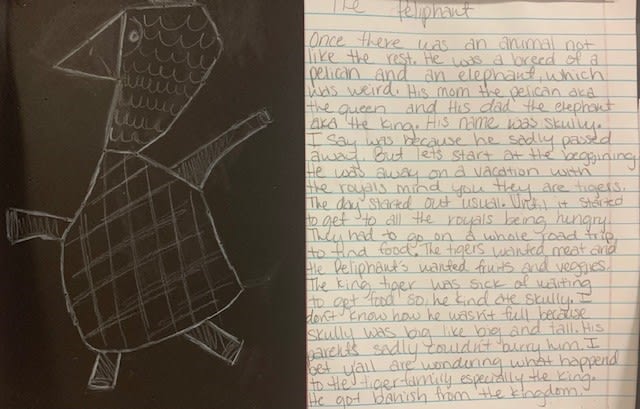 The Peliphant
Once there was an animal not
like the rest. He was a breed of a
pelican and an elephant, which
was weird. His mom the pelican aka
the queen and His dad the elephant
aka the king. His name was skully.
I say was because he sadly passed
away. But lets start at the beggining
He was away on a vacation with
the royals mind you they are tigers.
The day started out usual. Until it started
to get to all the royals being hungry.
They had to go on a whole road trip
to find food. The tigers wanted meat and
the Peliphants wanted fruits and veggies.
The king tiger was sick of waiting
to get food so, he kind ate skully. I
don't know how he wasn't full because
skully was big like big and tall. His
parents sadly couldn't burry him. I
bet y'all are wonduring what happend
to the tiger family especially the king.
He got banish from the kingdom.